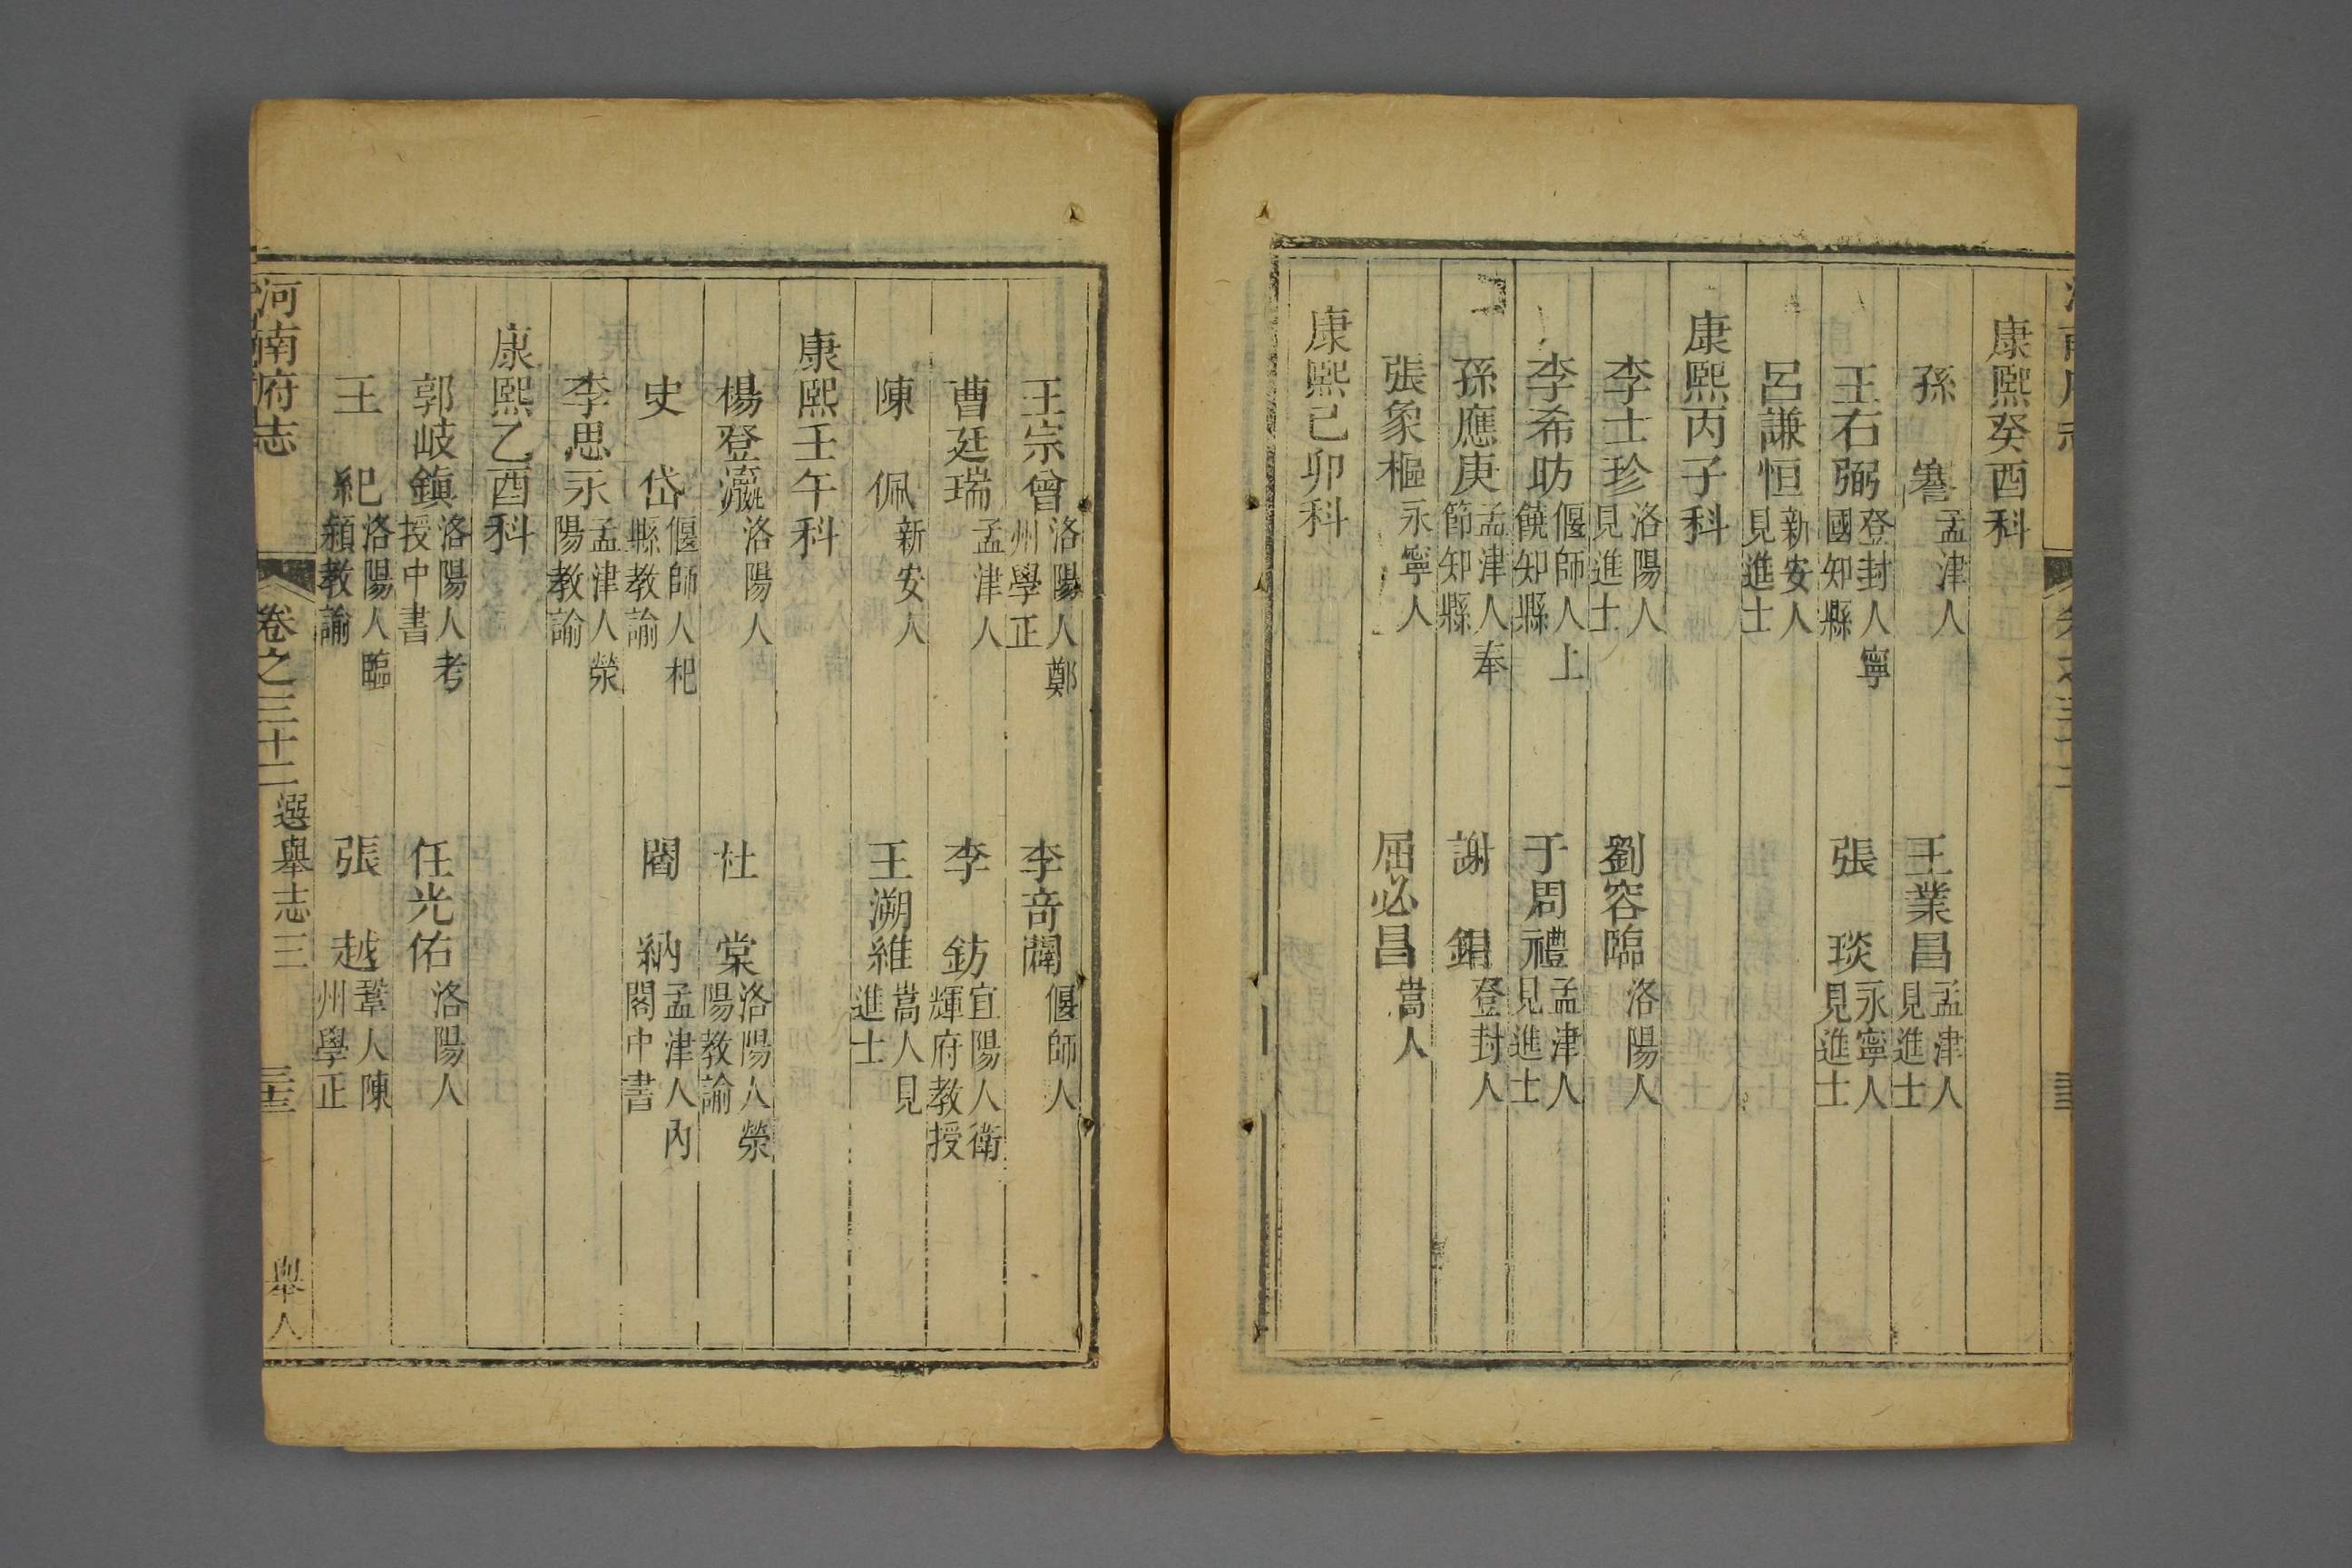 康熙癸酉科
孫 騫 孟津人 王業昌 孟津人見進士
王右弼 登封人寧國知縣 張 琰 永寧人見進士
呂謙恒 新安人見進士
康熙丙子科
李士珍 洛陽人見進士 劉容臨 洛陽人
李希昉 偃師人上饒知縣 于周禮 孟津人見進士
孫應庚 孟津人奉節知縣 謝 鋗 登封人
張象樞 永寧人 屈必昌 嵩人
康熙己卯科
王宗曾 洛陽人鄭州學正 李奇閳 偃師人
曹廷瑞 孟津人 李 鈁 宜陽人衛輝府教授
陳 佩 新安人 王溯維 嵩人見進士
康熙壬午科
楊登瀛 洛陽人 杜 棠 洛陽人滎陽教諭
史 岱 偃師人杞縣教諭 閻 納 孟津人內閣中書
李思永 孟津人滎陽教諭
康熙乙酉科
郭岐鎮 洛陽人考授中書 任光佑 洛陽人
王 紀 洛陽人臨潁教諭 張 越 鞏人陳州學正
河南府志 卷之三十二 選舉志三 三十三 舉人